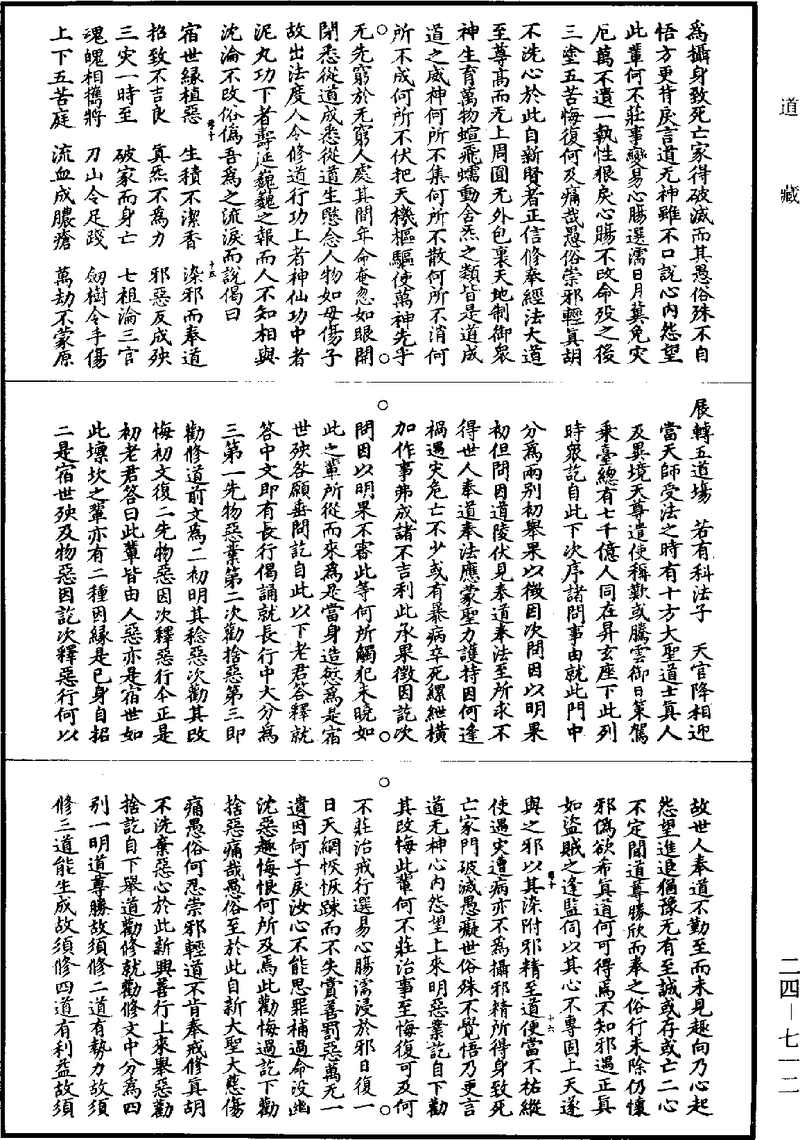 道藏
爲攝身致死亡家得破滅而其愚俗殊不自
悟方更背戾言道无神雖不口說心內怨望
此輩何不莊事變易心腸選濡日月冀免灾
厄萬不遺一執性狠戾心腸不改命歿之後
三塗五苦悔復何及痛哉愚俗崇邪輕真胡
不洗心於此自新賢者正信修奉經法大道
至尊高而无上周圓无外包裹天地制御衆
神生育萬物蜎飛蠕動含炁之類皆是道成
道之威神何所不集何所不散何所不消何
所不成何所不伏把天機樞驅使萬神先乎
无先窮於无窮人處其間年命奄忽如眼開
閉悉從道成悉從道生愍念人物如母傷子
故出法度人令修道行功上者神仙功中者
泥丸功下者壽延巍巍之報而人不知相與
沈淪不改俗偽吾爲之流淚而說偈曰
宿世緣植惡　生積不潔香　染邪而奉道
招致不吉良　真炁不爲力　邪惡反成殃
三灾一時至　破家而身亡　七祖淪三官
魂魄相攜將　刀山令足踐　劒樹令手傷
上下五苦庭　流血成膿瘡　萬劫不蒙原
展轉五道場　若有科法子　天官降相迎
當天師受法之時有十方大聖道士真人
及異境天尊遣使稱歎或騰雲御日策駕
乘臺總有七千億人同在昇玄座下此列
時衆訖自此下次序諸問事由就此門中
分爲兩別初舉果以徵因次問因以明果
初但問因道陵伏見奉道奉法至所求不
得世人奉道奉法應蒙聖力護持因何逢
禍遇灾危亡不少或有暴病卒死縲紲橫
加作事弗成諸不吉利此承果徵因訖次
問因以明果不審此等何所觸犯未曉如
此之輩所從而來爲是當身造愆爲是宿
世殃咎願垂問訖自此以下老君答釋就
答中文即有長行偈誦就長行中大分爲
三第一先物惡業第二次勸捨惡第三即
勸修道前文爲二初明其稔惡次勸其改
悔初文復二先物惡因次釋惡行今正是
初老君答曰此輩皆由人惡亦是宿世如
此壈坎之輩亦有二種因緣是已身自招
二是宿世殃及物惡因訖次釋惡行何以
故世人奉道不勤至而未見趣向乃心起
怨望進退猶豫无有至誠或存或亡二心
不定聞道尊勝欣而奉之俗行未除仍懷
邪偽欲希真道何可得焉不知邪遇正真
如盜賊之逢監伺以其心不專固上天遂
與之邪以其染附邪精至道便當不祐縱
使遇灾遭病亦不爲攝邪精所得身致死
亡家門破滅愚癡世俗殊不覺悟乃更言
道无神心內怨望上來明惡業訖自下勸
其改悔此輩何不莊治事至悔復可及何
不莊治戒行選易心腸濡浸於邪日復一
日天網恢恢踈而不失賞善罰惡萬无一
遺因何子戾汝心不能思罪補過命没幽
沈惡趣悔恨何所及焉此勸悔過訖下勸
捨惡痛哉愚俗至於此自新大聖大慈傷
痛愚俗何忍崇邪輕道不肯奉戒修真胡
不洗棄惡心於此新興善行上來舉惡勸
捨訖自下舉道勸修就勸修文中分爲四
別一明道尊勝故須修二道有勢力故須
修三道能生成故須修四道有利益故須
二四—七一二